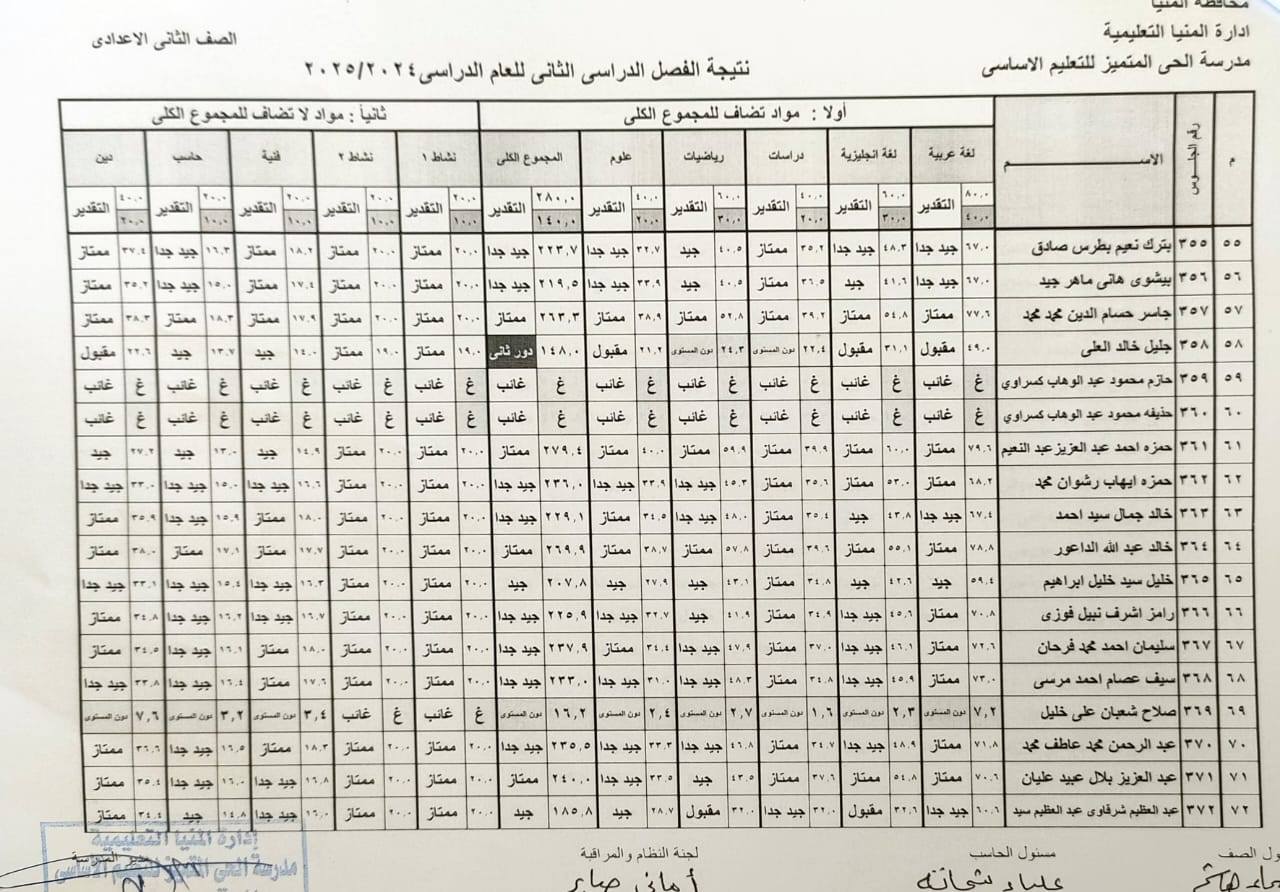 محافظة المنيا
ادارة المنيا التعليمية
مدرسة الحى المتميز للتعليم الاساسى
الصف الثانى الاعدادى
نتيجة الفصل الدراسى الثانى للعام الدراسى ٢٠٢٥/٢٠٢٤
أولا : مواد تضاف للمجموع الكلى ثانيأ : مواد لا تضاف للمجموع الكلى
م رقم الجلوس الاسم لغة عربية لغة انجليزية دراسات رياضيات علوم المجموع الكلى نشاط ١ نشاط ٢ فنية حاسب دين
٨٠.٠ التقدير ٦٠.٠ التقدير ٤٠.٠ التقدير ٦٠.٠ التقدير ٤٠.٠ التقدير ٢٨٠,٠ التقدير ٢٠.٠ التقدير ٢٠.٠ التقدير ٢٠.٠ التقدير ٢٠.٠ التقدير ٤٠.٠ التقدير
٤٠.٠ ٣٠.٠ ٢٠.٠ ٣٠.٠ ٢٠.٠ ١٤٠,٠ ١٠.٠ ١٠.٠ ١٠.٠ ١٠.٠ ٢٠.٠
٥٥ ٣٥٥ بترك نعيم بطرس صادق ٦٧,٠ جيد جدا ٤٨,٣ جيد جدا ٣٥,٢ ممتاز ٤٠,٥ جيد ٣٢,٧ جيد جدا ٢٢٣,٧ جيد جدا ٢٠,٠ ممتاز ٢٠,٠ ممتاز ١٨,٢ ممتاز ١٦,٣ جيد جدا ٣٧,٤ ممتاز
٥٦ ٣٥٦ بيشوى هانى ماهر جيد ٦٧,٠ جيد جدا ٤١,٦ جيد ٣٦,٥ ممتاز ٤٠,٥ جيد ٣٣,٩ جيد جدا ٢١٩,٥ جيد جدا ٢٠,٠ ممتاز ٢٠,٠ ممتاز ١٧,٤ ممتاز ١٥,٠ جيد جدا ٣٥,٢ ممتاز
٥٧ ٣٥٧ جاسر حسام الدين محمد محمد ٧٧,٦ ممتاز ٥٤,٨ ممتاز ٣٩,٢ ممتاز ٥٢,٨ ممتاز ٣٨,٩ ممتاز ٢٦٣,٣ ممتاز ٢٠,٠ ممتاز ٢٠,٠ ممتاز ١٧,٩ ممتاز ١٨,٣ ممتاز ٣٨,٣ ممتاز
٥٨ ٣٥٨ جليل خالد العلى ٤٩,٠ مقبول ٣١,١ مقبول ٢٢,٤ دون المستوى ٢٤,٣ دون المستوى ٢١,٢ مقبول ١٤٨,٠ دور ثانى ١٩,٠ ممتاز ١٩,٠ ممتاز ١٤,٠ جيد ١٣,٧ جيد ٢٢,٦ مقبول
٥٩ ٣٥٩ حازم محمود عبد الوهاب كسراوي غ غائب غ غائب غ غائب غ غائب غ غائب غ غائب غ غائب غ غائب غ غائب غ غائب غ غائب
٦٠ ٣٦٠ حذيفه محمود عبد الوهاب كسراوي غ غائب غ غائب غ غائب غ غائب غ غائب غ غائب غ غائب غ غائب غ غائب غ غائب غ غائب
٦١ ٣٦١ حمزه احمد عبد العزيزعبد النعيم ٧٩,٦ ممتاز ٦٠,٠ ممتاز ٣٩,٩ ممتاز ٥٩,٩ ممتاز ٤٠,٠ ممتاز ٢٧٩,٤ ممتاز ٢٠,٠ ممتاز ٢٠,٠ ممتاز ١٤,٩ جيد ١٣,٠ جيد ٢٧,٢ جيد
٦٢ ٣٦٢ حمزه ايهاب رشوان محمد ٦٨,٢ ممتاز ٥٣,٠ ممتاز ٣٥,٦ ممتاز ٤٥,٣ جيد جدا ٣٣,٩ جيد جدا ٢٣٦,٠ جيد جدا ٢٠,٠ ممتاز ٢٠,٠ ممتاز ١٦,٦ جيد جدا ١٥,٠ جيد جدا ٣٣,٠ جيد جدا
٦٣ ٣٦٣ خالد جمال سيد احمد ٦٧,٤ جيد جدا ٤٣,٨ جيد ٣٥,٤ ممتاز ٤٨,٠ جيد جدا ٣٤,٥ ممتاز ٢٢٩,١ جيد جدا ٢٠,٠ ممتاز ٢٠,٠ ممتاز ١٨,٠ ممتاز ١٥,٩ جيد جدا ٣٥,٩ ممتاز
٦٤ ٣٦٤ خالد عبد الله الداعور ٧٨,٨ ممتاز ٥٥,١ ممتاز ٣٩,٦ ممتاز ٥٧,٨ ممتاز ٣٨,٧ ممتاز ٢٦٩,٩ ممتاز ٢٠,٠ ممتاز ٢٠,٠ ممتاز ١٧,٧ ممتاز ١٧,١ ممتاز ٣٨,٠ ممتاز
٦٥ ٣٦٥ خليل سيد خليل ابراهيم ٥٩,٤ جيد ٤٢,٦ جيد ٣٤,٨ ممتاز ٤٣,١ جيد ٢٧,٩ جيد ٢٠٧,٨ جيد ٢٠,٠ ممتاز ٢٠,٠ ممتاز ١٦,٣ جيد جدا ١٥,٤ جيد جدا ٣٣,١ جيد جدا
٦٦ ٣٦٦ رامز اشرف نبيل فوزى ٧٠,٨ ممتاز ٤٥,٦ جيد جدا ٣٤,٩ ممتاز ٤١,٩ جيد ٣٢,٧ جيد جدا ٢٢٥,٩ جيد جدا ٢٠,٠ ممتاز ٢٠,٠ ممتاز ١٦,٧ جيد جدا ١٦,٢ جيد جدا ٣٤,٨ ممتاز
٦٧ ٣٦٧ سليمان احمد محمد فرحان ٧٢,٦ ممتاز ٤٦,١ جيد جدا ٣٧,٠ ممتاز ٤٧,٩ جيد جدا ٣٤,٤ ممتاز ٢٣٧,٩ جيد جدا ٢٠,٠ ممتاز ٢٠,٠ ممتاز ١٨,٠ ممتاز ١٦,١ جيد جدا ٣٤,٥ ممتاز
٦٨ ٣٦٨ سيف عصام احمد مرسى ٧٣,٠ ممتاز ٤٥,٩ جيد جدا ٣٤,٨ ممتاز ٤٨,٣ جيد جدا ٣١,٠ جيد جدا ٢٣٣,٠ جيد جدا ٢٠,٠ ممتاز ٢٠,٠ ممتاز ١٧,٦ ممتاز ١٦,٤ جيد جدا ٣٣,٨ جيد جدا
٦٩ ٣٦٩ صلاح شعبان على خليل ٧,٢ دون المستوى ٢,٣ دون المستوى ١,٦ دون المستوى ٢,٧ دون المستوى ٢,٤ دون المستوى ١٦,٢ دون المستوى غ غائب غ غائب ٣,٤ دون المستوى ٣,٢ دون المستوى ٧,٦ دون المستوى
٧٠ ٣٧٠ عبد الرحمن محمد عاطف محمد ٧١,٨ ممتاز ٤٨,٩ جيد جدا ٣٤,٧ ممتاز ٤٦,٨ جيد جدا ٣٣,٣ جيد جدا ٢٣٥,٥ جيد جدا ٢٠,٠ ممتاز ٢٠,٠ ممتاز ١٨,٣ ممتاز ١٦,٥ جيد جدا ٣٦,٦ ممتاز
٧١ ٣٧١ عبد العزيز بلال عبيد عليان ٧٠,٦ ممتاز ٥٤,٨ ممتاز ٣٧,٦ ممتاز ٤٣,٥ جيد ٣٣,٥ جيد جدا ٢٤٠,٠ ممتاز ٢٠,٠ ممتاز ٢٠,٠ ممتاز ١٦,٨ جيد جدا ١٦,٠ جيد جدا ٣٥,٤ ممتاز
٧٢ ٣٧٢ عبد العظيم شرقاوى عبد العظيم سيد ٦٠,٦ جيد جدا ٣٢,٦ مقبول ٣٢,٠ جيد جدا ٣٢,٠ مقبول ٢٨,٧ جيد ١٨٥,٨ جيد ٢٠,٠ ممتاز ٢٠,٠ ممتاز ١٦,٠ جيد جدا ١٤,٨ جيد ٣٤,٤ ممتاز
الصف مسئول الحاسب لجنة النظام والمراقبة مدير المدرسة
علياء شحاته أمانى صابر
إدارة المنيا التعليمية
مدرسة الحى المتميز للتعليم الأساسى